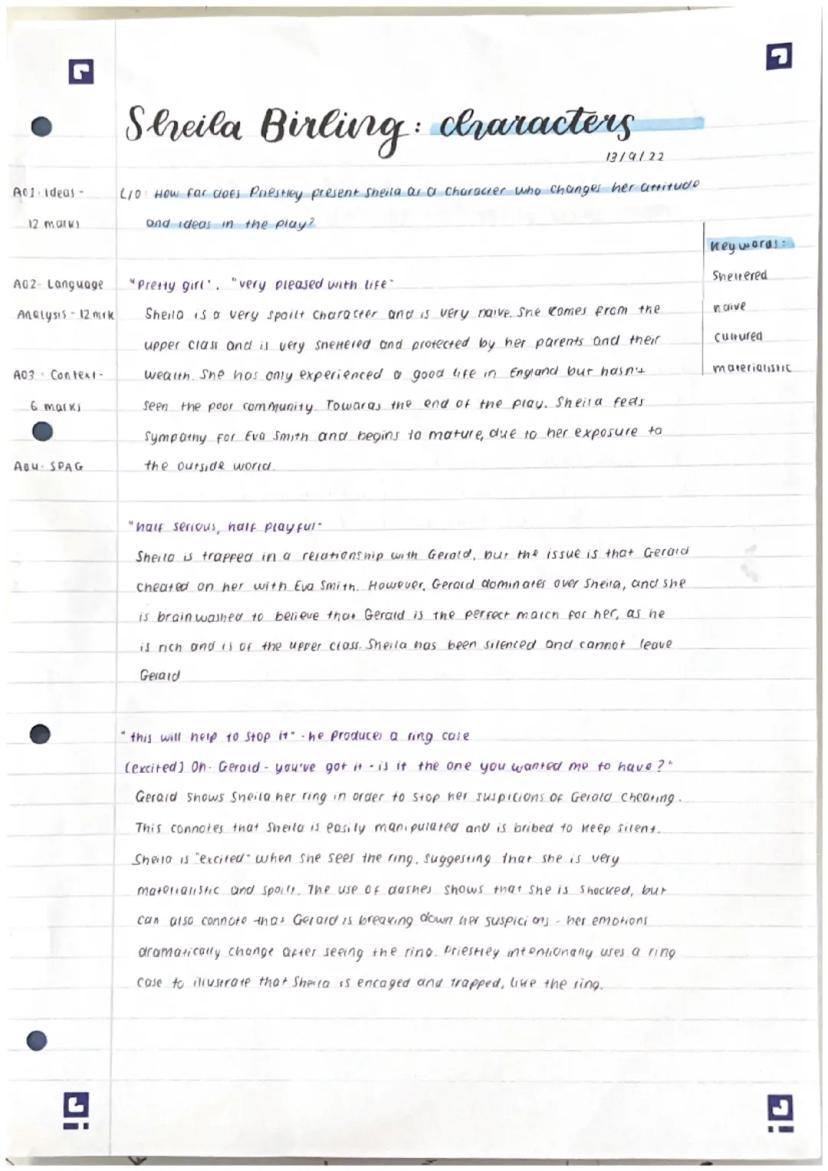 Sheila Birling: characters
13/9/22
AO1 · Ideas -
12 marks
L/O: How far does Priestley present Sheila as a character who changes her attitude
and ideas in the play?
Key words:
Sheltered
naive
cultured
materialistic
AO2 - Language
Analysis - 12 mrk
AO3 · Context -
6 marks
AO4 - SPAG
"Pretty girl", "very pleased with life"
Sheila is a very spoilt character and is very naive. She comes from the
upper class and is very sheltered and protected by her parents and their
wealth. She has only experienced a good life in England but hasn't
seen the poor community. Towards the end of the play, Sheila feels
sympathy for Eva Smith and begins to mature, due to her exposure to
the outside world.
"half serious, half playful"
Sheila is trapped in a relationship with Gerald, but the issue is that Gerald
cheated on her with Eva Smith. However, Gerald dominates over Sheila, and she
is brainwashed to believe that Gerald is the perfect match for her, as he
is rich and is of the upper class. Sheila has been silenced and cannot leave
Gerald
"this will help to stop it" - he produces a ring case
(excited) Oh - Gerald - you've got it - is it the one you wanted me to have?"
Gerald shows Sheila her ring in order to stop her suspicions of Gerald cheating.
This connotes that Sheila is easily manipulated and is bribed to keep silent.
Sheila is "excited" when she sees the ring, suggesting that she is very
materialistic and spoilt. The use of dashes shows that she is shocked, but
can also connote that Gerald is breaking down her suspicions - her emotions
dramatically change after seeing the ring. Priestley intentionally uses a ring
case to illustrate that Sheila is encaged and trapped, like the ring.